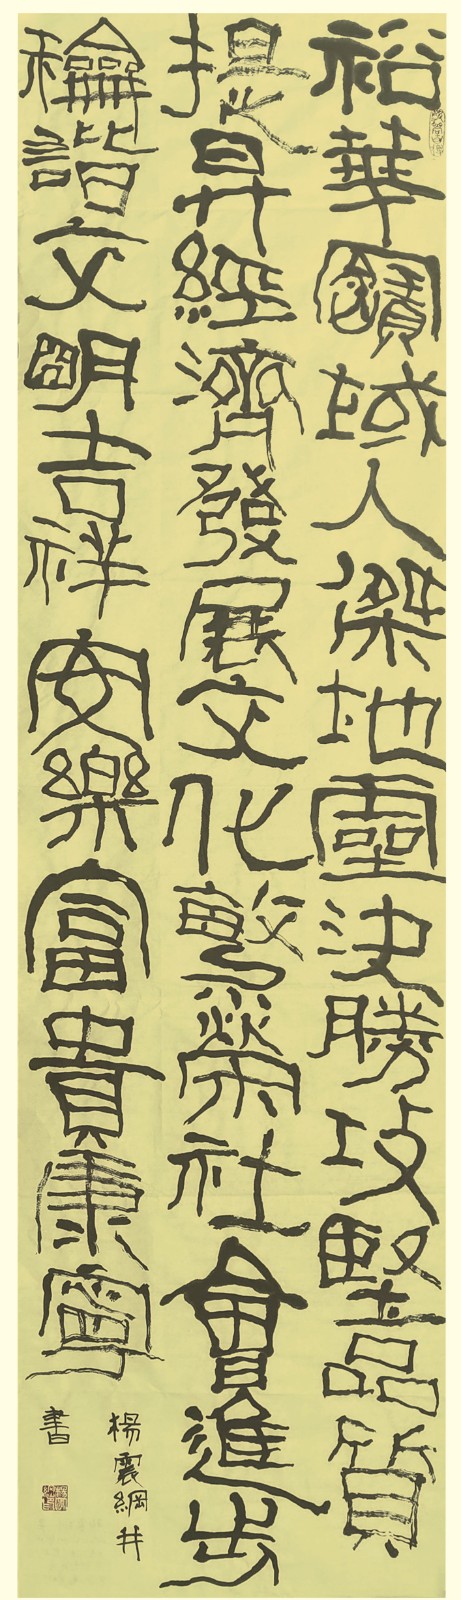 裕華寶域人傑地靈決勝攻堅品質
提昇經濟發展文化繁榮社會進步
龢諧文明吉祥安樂富貴康寧
楊震綱并
書